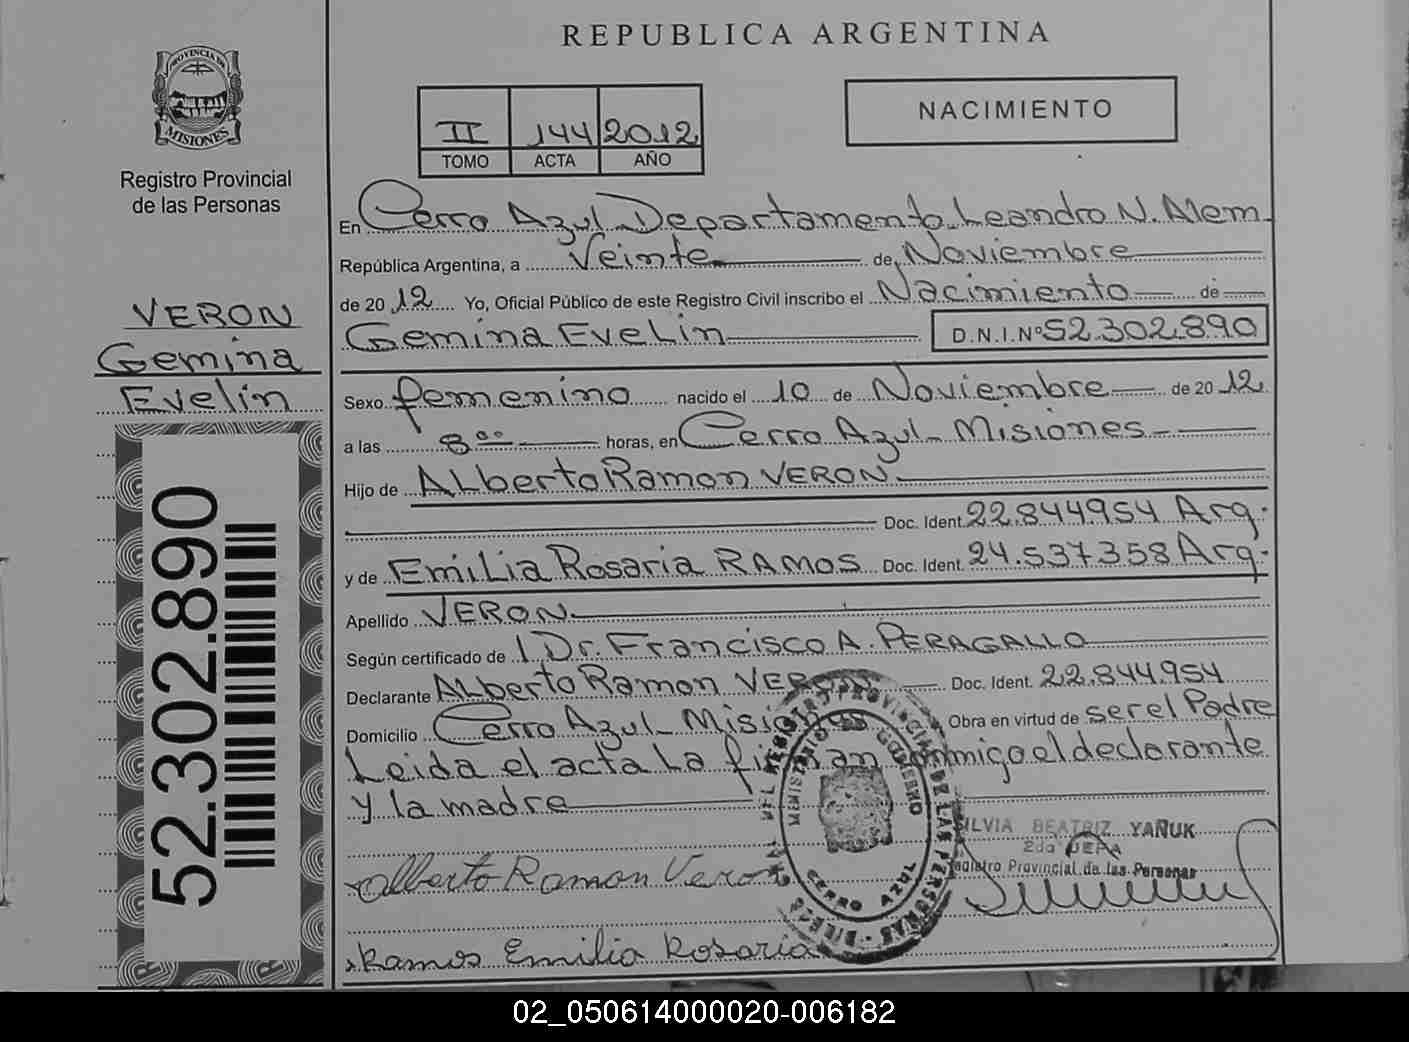 REPUBLICA ARGENTINA
PROVINCIA DE
MISIONES
Registro Provincial
de las Personas
II 144 2012
TOMO ACTA AÑO
NACIMIENTO
VERON
Gemina
Evelin
52.302.890
En Cerro Azul Departamento Leandro N. Alem
República Argentina, a Veinte de Noviembre
de 2012 Yo, Oficial Público de este Registro Civil inscribo el Nacimiento de
Gemina Evelin D.N.I.Nº 52.302.890
Sexo femenino nacido el 10 de Noviembre de 2012
a las 8 00 horas, en Cerro Azul - Misiones -
Hijo de Alberto Ramon VERON
Doc. Ident. 22.844.954 Arg.
y de Emilia Rosaria RAMOS Doc. Ident. 24.537.358 Arg.
Apellido VERON
Según certificado de Dr. Francisco A. PERAGALLO
Declarante Alberto Ramon VERON Doc. Ident. 22.844.954
Domicilio Cerro Azul - Misiones Obra en virtud de ser el Padre
Leida el acta la firman conmigo el declarante
y la madre
REGISTRO PROVINCIAL DE LAS PERSONAS
MINISTERIO DE GOBIERNO
CERRO AZUL
SILVIA BEATRIZ YAÑUK
2da JEFA
Registro Provincial de las Personas
Alberto Ramon Veron
Ramos Emilia Rosaria
02_050614000020-006182